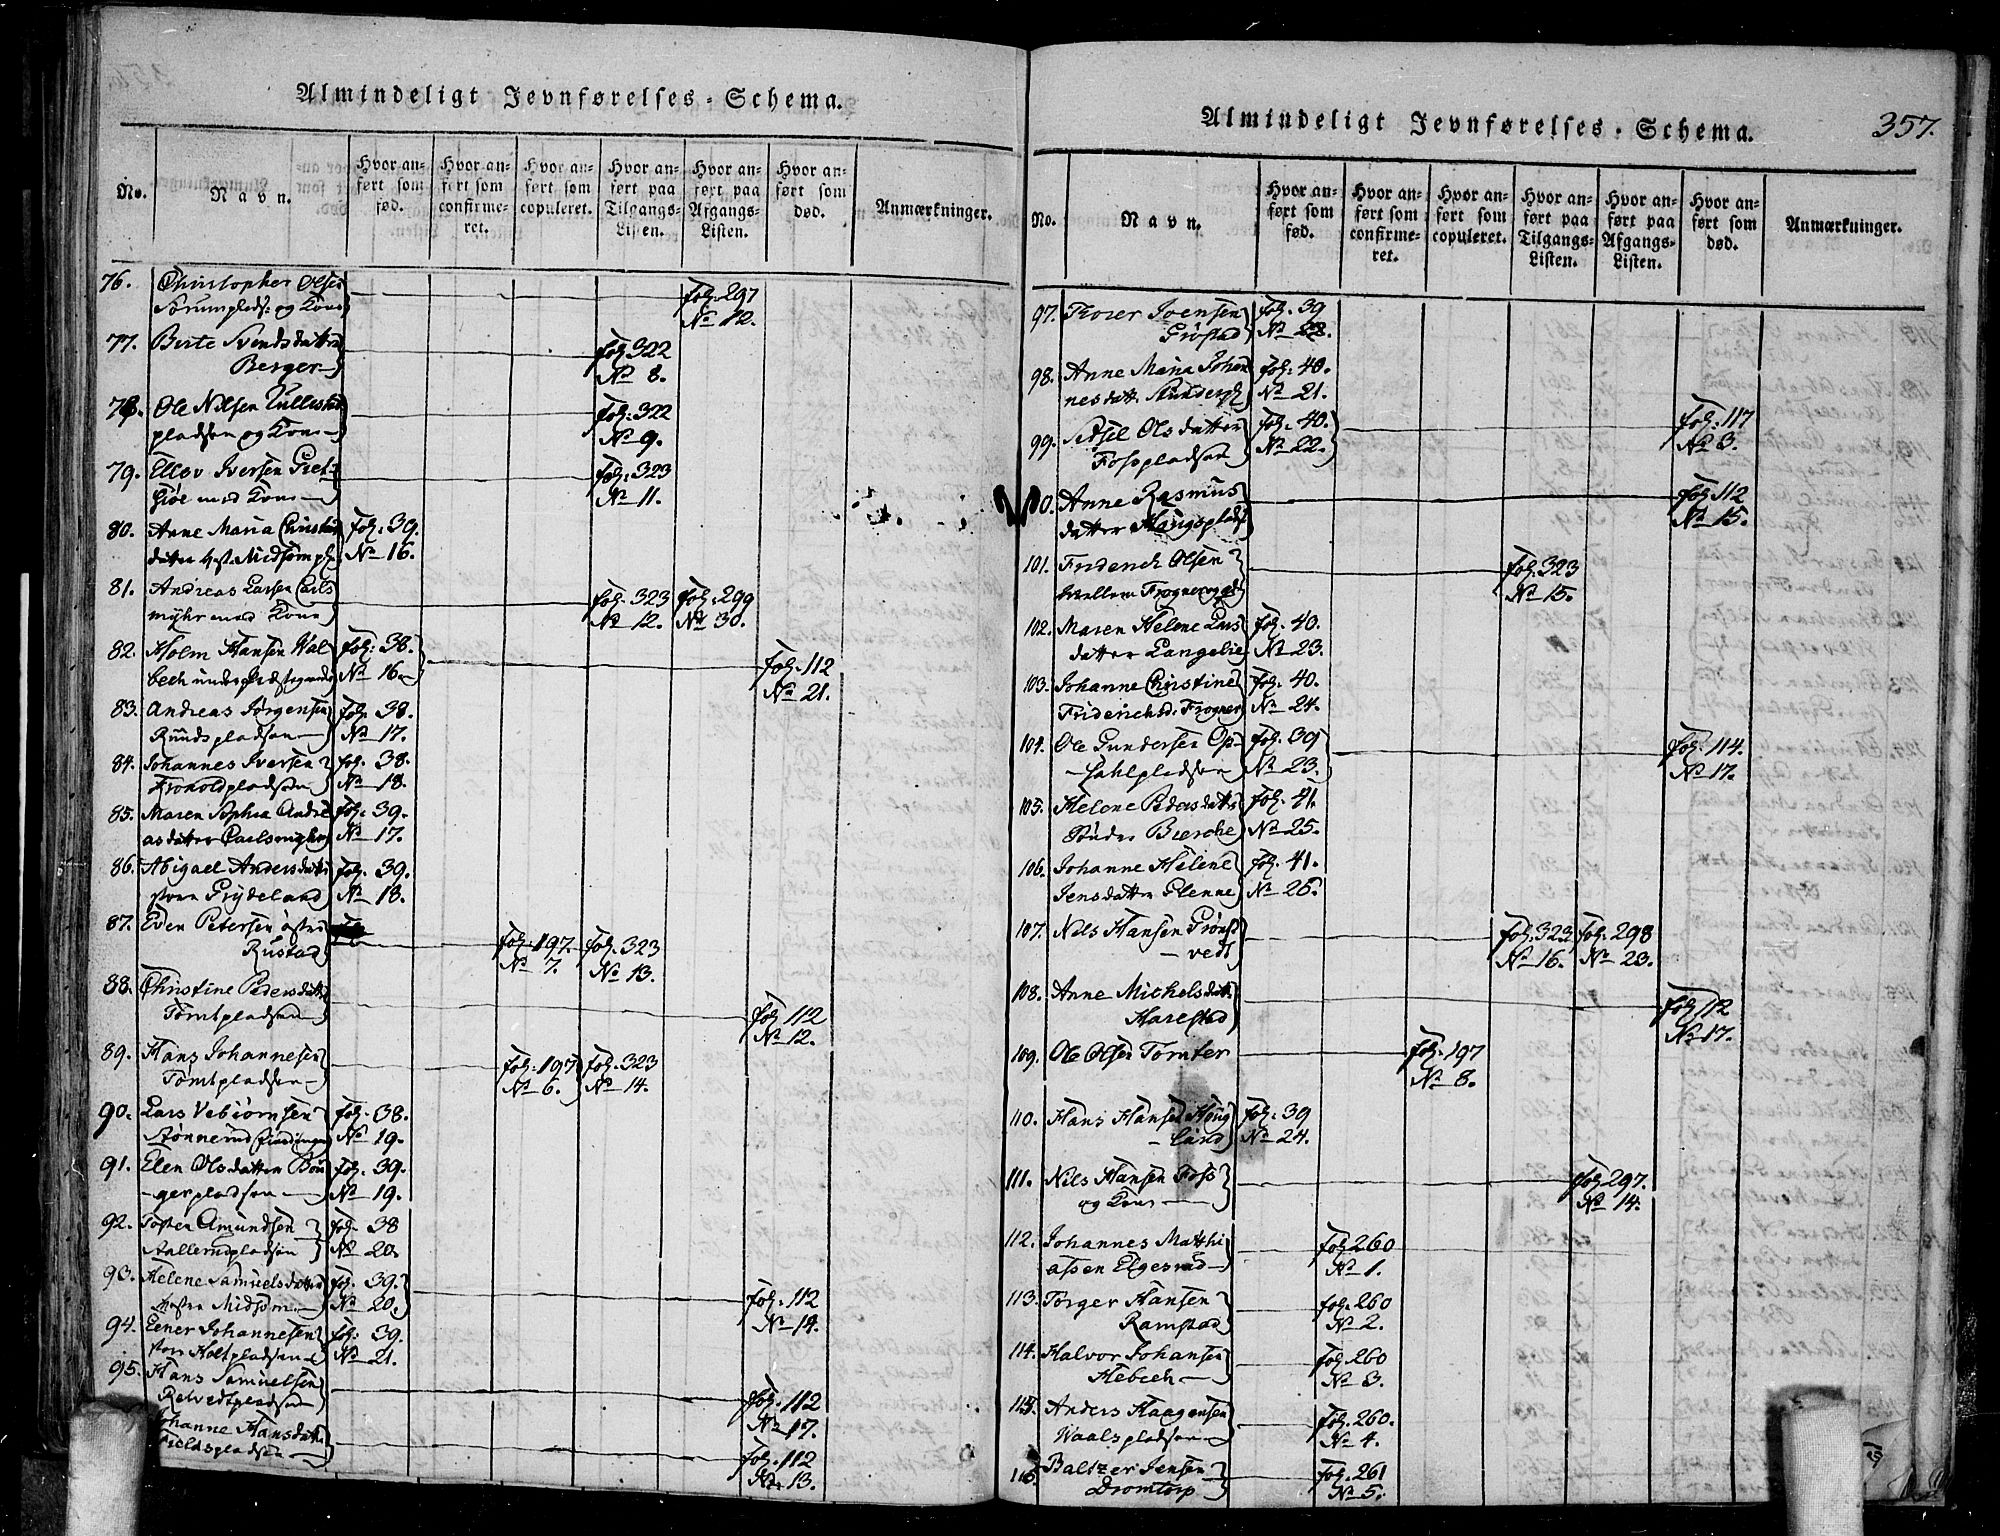 Almindeligt Jevnførelses-Schema.
No.
Navn.
Hvor anført som fød.
Hvor anført som confirmeret.
Hvor anført som copuleret.
Hvor anført paa Tilgangs-Listen.
Hvor anført paa Afgangs-Listen.
Hvor anført som død.
Anmærkninger.
76. Christopher Olsen fol. 297
og Kone No 12.
77. Berte Svendsdatter fol. 322
Berger No 8.
78. Ole Nilsen fol. 322
pladsen og Kone No 9.
79. Ellev Iversen fol. 323
med Kone No 11.
80. Anne Maria fol. 39.
datter No 16.
81. Andreas Larsen Carls fol. 323 fol. 299
myhr med Kone No 12. No 30.
82. Holm Hansen Wal fol. 38. fol. 112
bech No 16. No 21.
83. Andreas Jørgensen fol. 38.
Ruudspladsen No 17.
84. Johannes Iversen fol. 38.
No 18.
85. Maren Sophia Andre fol. 39.
asdatter Carlsmyhr No 17.
86. Abigael Andersdatter fol. 39.
No 18.
87. Eden Petersen østre fol. 197. fol. 323
Rustad No 7. No 13.
88. Christine Pedersdatter fol. 112
Tomtpladsen No 12.
89. Hans Johannesen fol. 197 fol. 323
Tomtpladsen No 6. No 14.
90. Lars Vebiørnsen fol. 38.
No 19.
91. Elen Olsdatter Bør fol. 39.
gerpladsen No 19.
92. Toster Amundsen fol. 38
No 20.
93. Helene Samuelsdatter fol. 39. fol. 112
Midsom No 20. No 14.
94. Eener Johannesen fol. 39.
Holtpladsen No 21.
95. Hans Samuelsen fol. 112
No 17.
Johanne Hansdatter fol. 112
No 13.
Almindeligt Jevnførelses-Schema. 357.
No.
Navn.
Hvor anført som fød.
Hvor anført som confirmeret.
Hvor anført som copuleret.
Hvor anført paa Tilgangs-Listen.
Hvor anført paa Afgangs-Listen.
Hvor anført som død.
Anmærkninger.
97. Thorer Joensen fol. 39
No 22.
98. Anne Maria Johan fol. 40.
nesdatt No 21.
99. Sidsel Olsdatter fol. 40. fol. 117
Fosspladsen No 22. No 3.
Anne Rasmus fol. 112
datter Haugsplads No 15.
101. Friderich Olsen fol. 323
No 15.
102. Maren Helene Lars fol. 40.
datter Langelie No 23.
103. Johanne Christine fol. 40.
Friderichsd. Frogner No 24.
104. Ole Gundersen Op- fol. 39 fol. 114.
sahlpladsen No 23. No 17.
105. Helene Pedersdatter fol. 41.
Bierche No 25.
106. Johanne Helene fol. 41.
Jensdatter Glenne No 26.
107. Nils Hansen fol. 323 fol. 298
vedt No 16. No 23.
108. Anne Michelsdatter fol. 112
Harestad No 17.
109. Ole Olsen Tomter fol. 197
No 8.
110. Hans Hansen Haug fol. 39
land No 24.
111. Nils Hansen Foss fol. 297.
og Kone No 14.
112. Johannes Matthi fol. 260
assen Elgesrud No 1.
113. Torger Hansen fol. 260
Ramstad No 2.
114. Halvor Johansen fol. 260
Hebech No 3.
115. Anders Haagensen fol. 260.
Waalspladsen No 4.
116. Baltzer Jensen fol. 261
Dromtorp No 5.